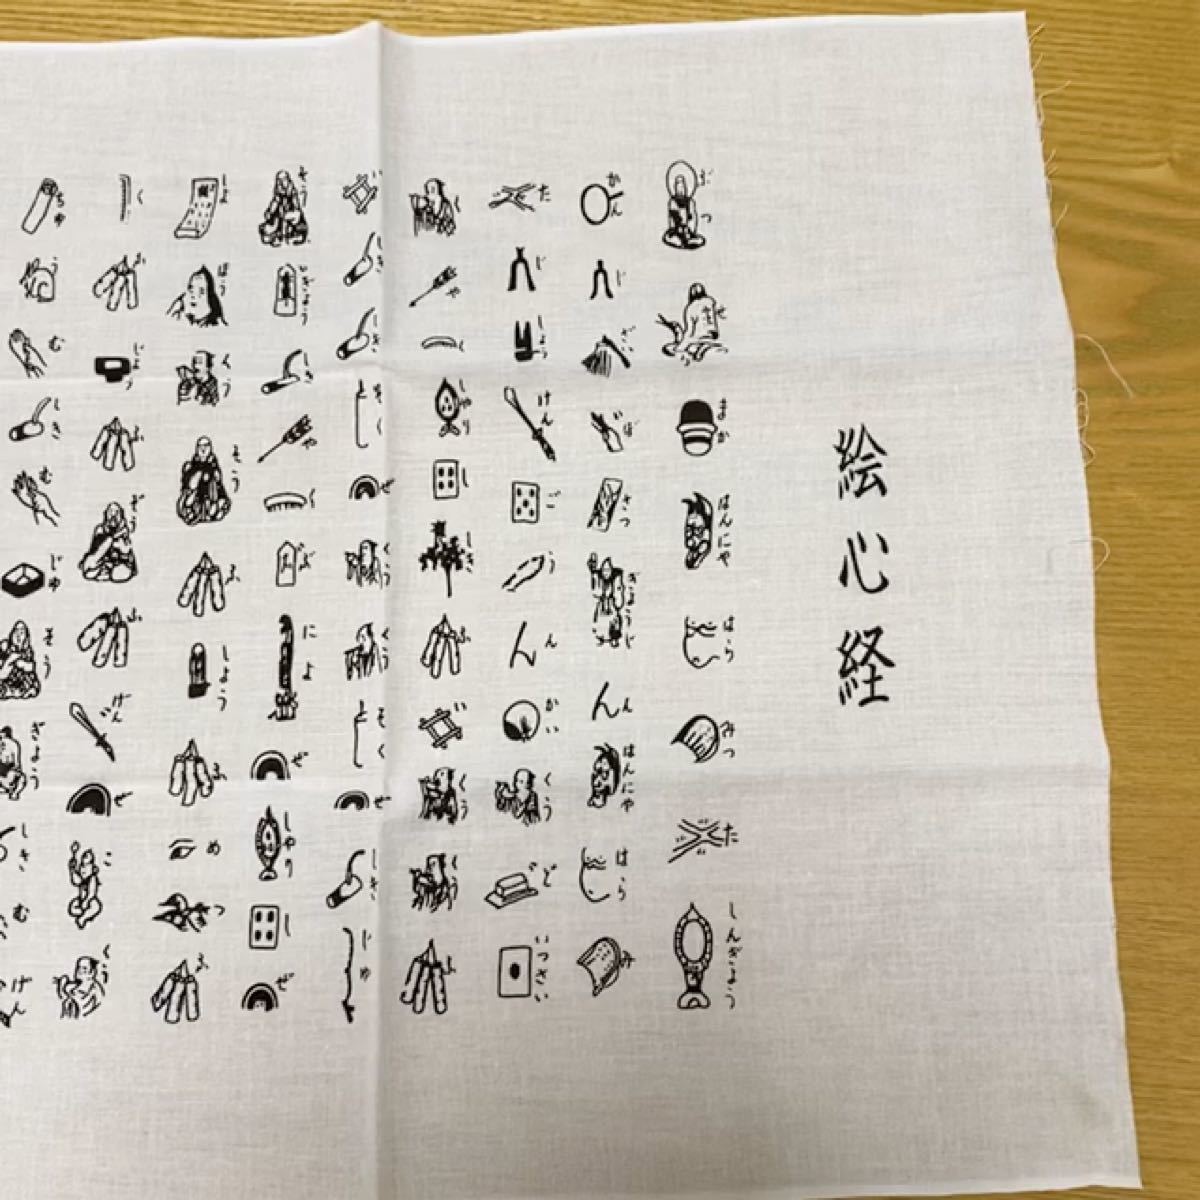 絵心経
ぶつ
せつ
まか
はんにや
はら
みつ
た
しんぎよう
かん
じ
ざい
ぼ
さつ
ぎようじ
ん
はんにや
はら
み
た
じ
しよう
けん
ご
う
ん
かい
くう
ど
いつさい
く
や
く
しやり
し
しき
ふ
い
くう
くう
ふ
い
しき
しき
そく
ぜ
くう
くう
そく
ぜ
しき
じゆ
そう
ぎよう
しき
や
く
ぶ
によ
ぜ
しやり
し
ぜ
しよ
ほう
くう
そう
ふ
しよう
ふ
め
つ
ふ
く
ふ
じよう
ふ
ぞう
ふ
げん
ぜ
こ
くう
ちゆ
う
む
しき
む
じゆ
そう
ぎよう
しき
む
げん